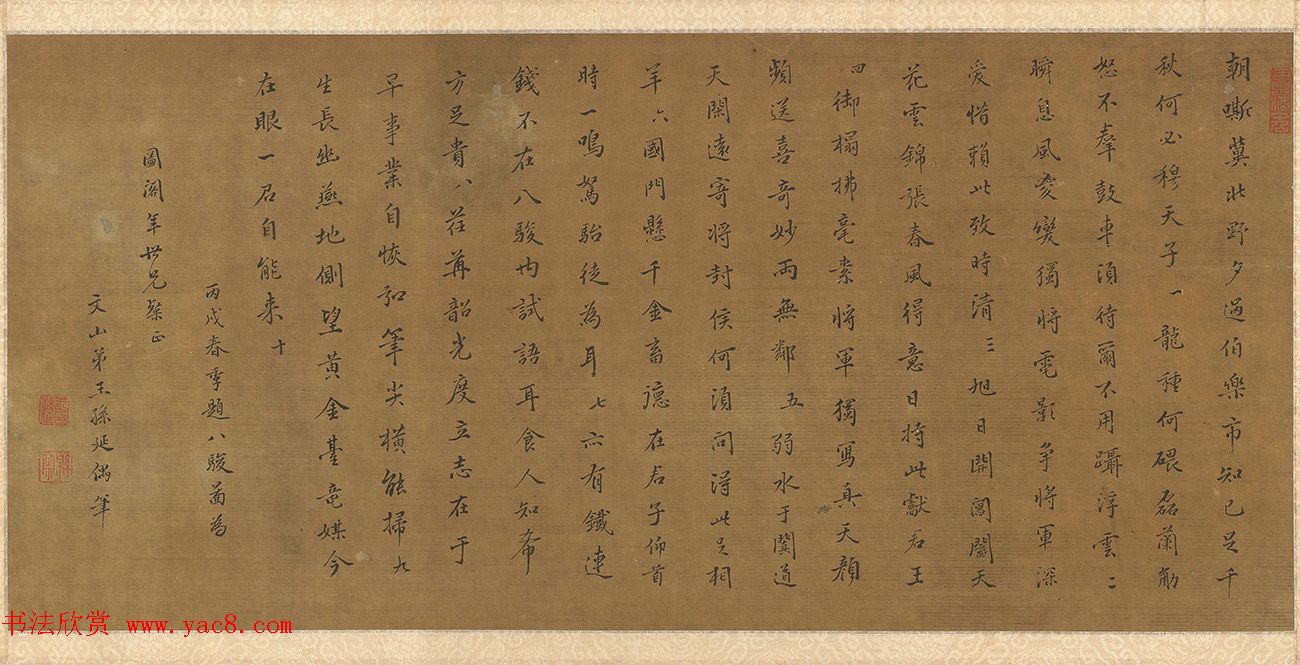 朝嘶冀北野夕過伯樂市知己足千
秋何必穆天子一龍種何磈磊蘭筋
怒不羣鼓車須待爾不用躡浮雲二
瞬息風雲變獨將電影爭將軍深
愛惜賴此致時清三旭日開閶闔天
花雲錦張春風得意日持此獻君王
四御榻拂毫素將軍獨寫真天顏
頻送喜奇妙兩無鄰五弱水于闐道
天閑遠寄將封侯何須問得此足相
羊六國門懸千金畜德在君子仰首
時一鳴駑駘徒為耳七亦有鐵連
錢不在八駿內試語耳食人知希
方足貴八荏苒韶光度立志在于
早事業自恢弘筆尖橫能掃九
生長幽燕地側望黃金臺竜媒今
在眼一君自能来十
丙戌春季題八駿圖為
圖閣年世兄粲正
文山弟王孫延偶筆
书法欣赏 www.yac8.com